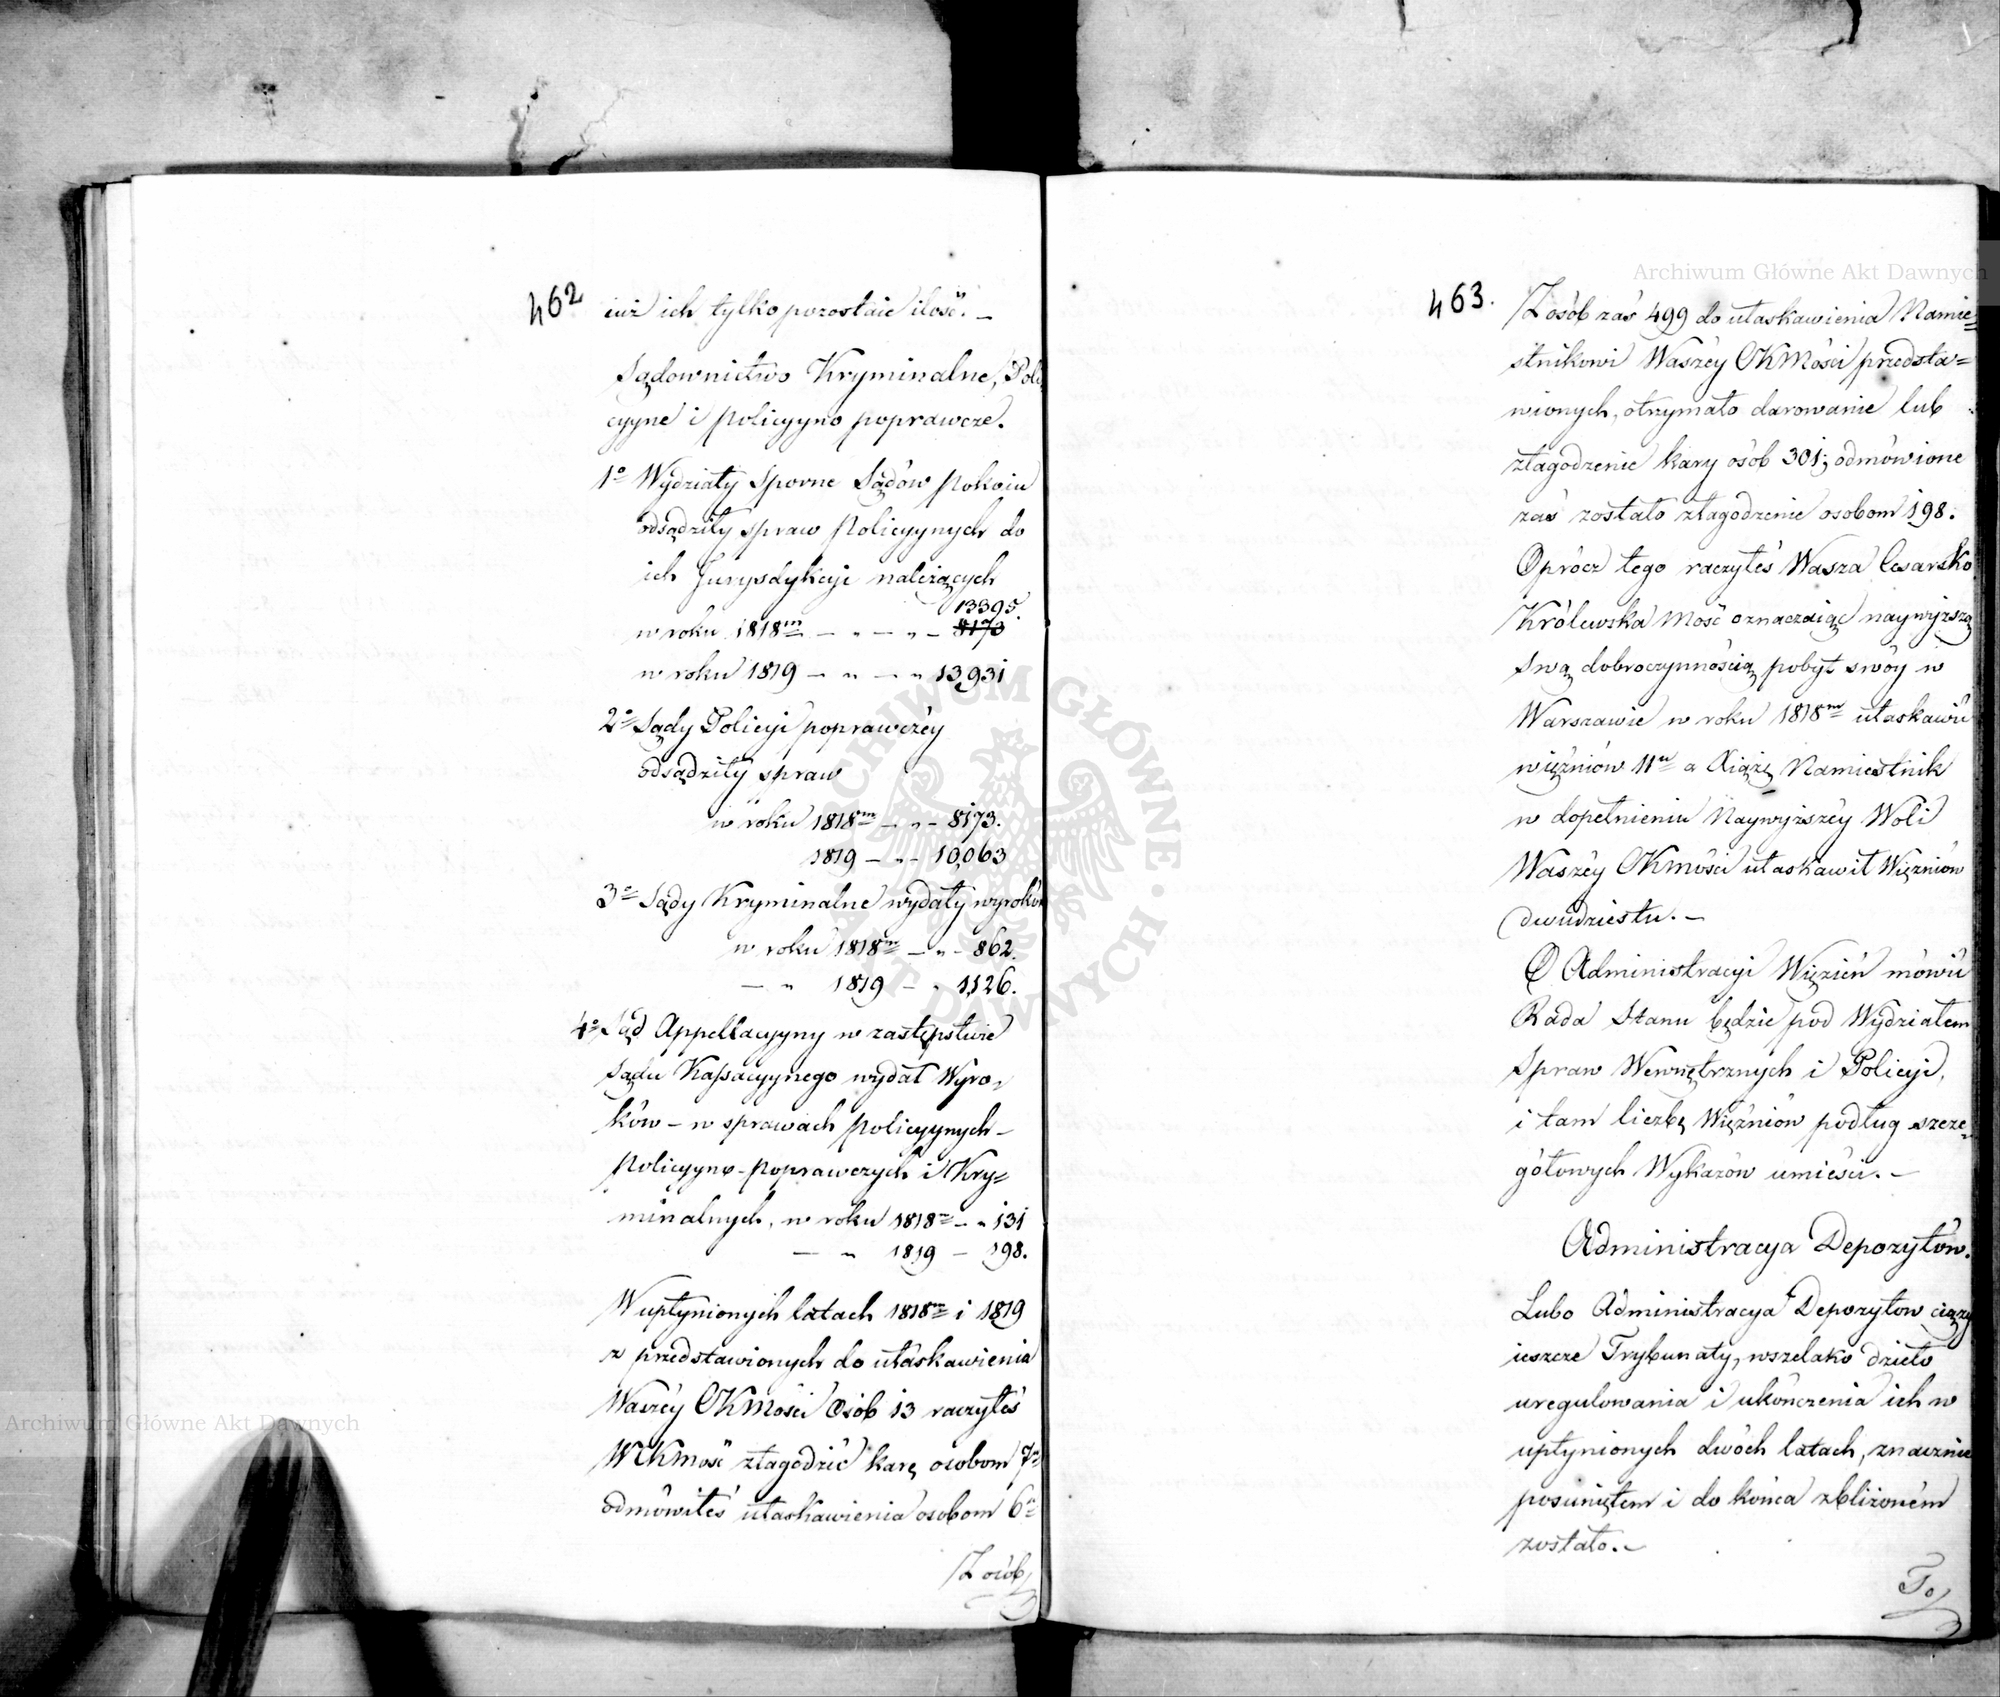 462
iuż ich tylko pozostaie ilość. –
Sądownictwo Kryminalne, Poli
cyyne i policyyno poprawcze.
1o Wydziały Sporne Sądów pokoiu
odsądziły spraw Policyynych do
ich Jurysdykcyi należących
13395.
w roku 1818m – „ – „ – 8173
w roku 1819 – „ – „ 13,931
2o Sądy Policyi poprawczéy
odsądziły spraw
w roku 1818m – „ – 8173.
1819 – „ – 10,063
3o Sądy Kryminalne wydały wyroków
w roku 1818m – „ – 862.
– „ 1819 – „ 1,126.
4o Sąd Appellacyyny w zastępstwie
Sądu Kassacyynego wydał Wyro-
ków – w sprawach policyynych –
policyyno-poprawczych i Kry=
minalnych, w roku 1818m – „ 131
– „ 1819 – 198.
W upłynionych latach 1818m i 1819
z przedstawionych do ułaskawienia
Waszéy CKMości osób 13 raczyłeś
WCKMość złagodzić karę osobom 7u
odmówiłeś ułaskawienia osobom 6u
Z osób
463.
Z osób zaś 499 do ułaskawienia Namie=
stnikowi Waszéy CKMości przedsta=
wionych, otrzymało darowanie lub
złagodzenie kary osób 301; odmówione
zaś zostało złagodzenie osobom 198.
Oprócz tego raczyłeś Wasza Cesarsko
Królewska Mość oznaczaiąc naywyższą
Swą dobroczynnością pobyt swóy w
Warszawie w roku 1818m ułaskawić
więźniów 11u a Xiążę Namiestnik
w dopełnieniu Naywyższéy Woli
Waszéy CKMości ułaskawił Więźniów
dwudziestu. –
O Administracyi Więzień mówić
Rada Stanu będzie pod Wydziałem
Spraw Wewnętrznych i Policyi,
i tam liczbę Więźniów podług szcze-
gółowych Wykazów umieści. –
Administracya Depozytów.
Lubo Administracya Depozytow ciąży
ieszcze Trybunały, wszelako dzieło
uregulowania i ukończenia ich w
upłynionych dwóch latach, znacznie
posuniętem i do końca zbliżoném
zostało. –
To
Archiwum Główne Akt Dawnych
Archiwum Główne Akt Dawnych
ARCHIWUM GŁÓWNE · AKT DAWNYCH ·